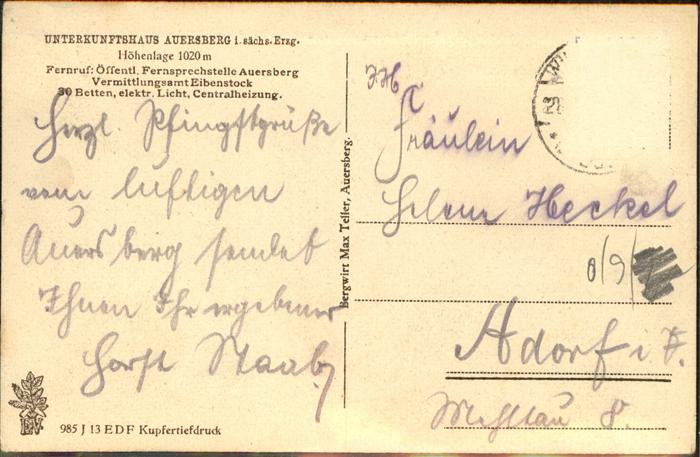 UNTERKUNFTSHAUS AUERSBERG i. sächs. Erzg.
Höhenlage 1020 m
Fernruf: Öffentl. Fernsprechstelle Auersberg
Vermittlungsamt Eibenstock
30 Betten, elektr. Licht, Centralheizung.
Herzl. Pfingstgrüße
vom luftigen
Auersberg sendet
Ihnen Ihr ergebener
Horst Staab
985 J 13 EDF Kupfertiefdruck
Bergwirt Max Telfer, Auersberg.
Fräulein
Helene Heckel
Adorf i. V.
8.